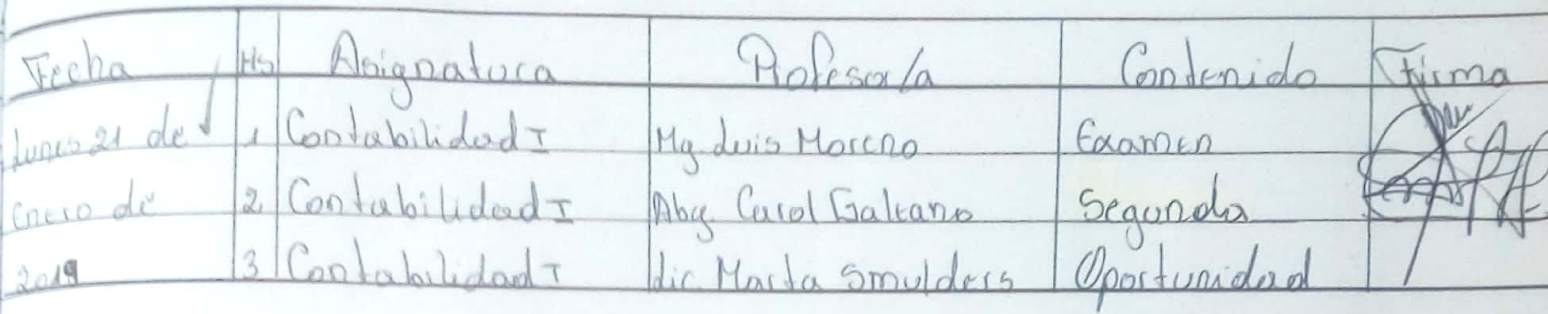 Fecha Hs Asignatura Profesor/a Contenido Firma
Lunes 21 de 1 Contabilidad I Mg Luis Moreno Examen
Enero de 2 Contabilidad I Abg. Carol Galeano Segunda
2019 3 Contabilidad I Lic. Marta Smulders Oportunidad